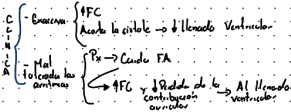 CLINICA
- Graciava
↑FC
Acorta la sístole → ↓ llenado Ventricular.
- Mal toleradas las arritmias
Px → Cuida FA
↑FC y ↓Perdida de la contribución auricular → Al llenado ventricular